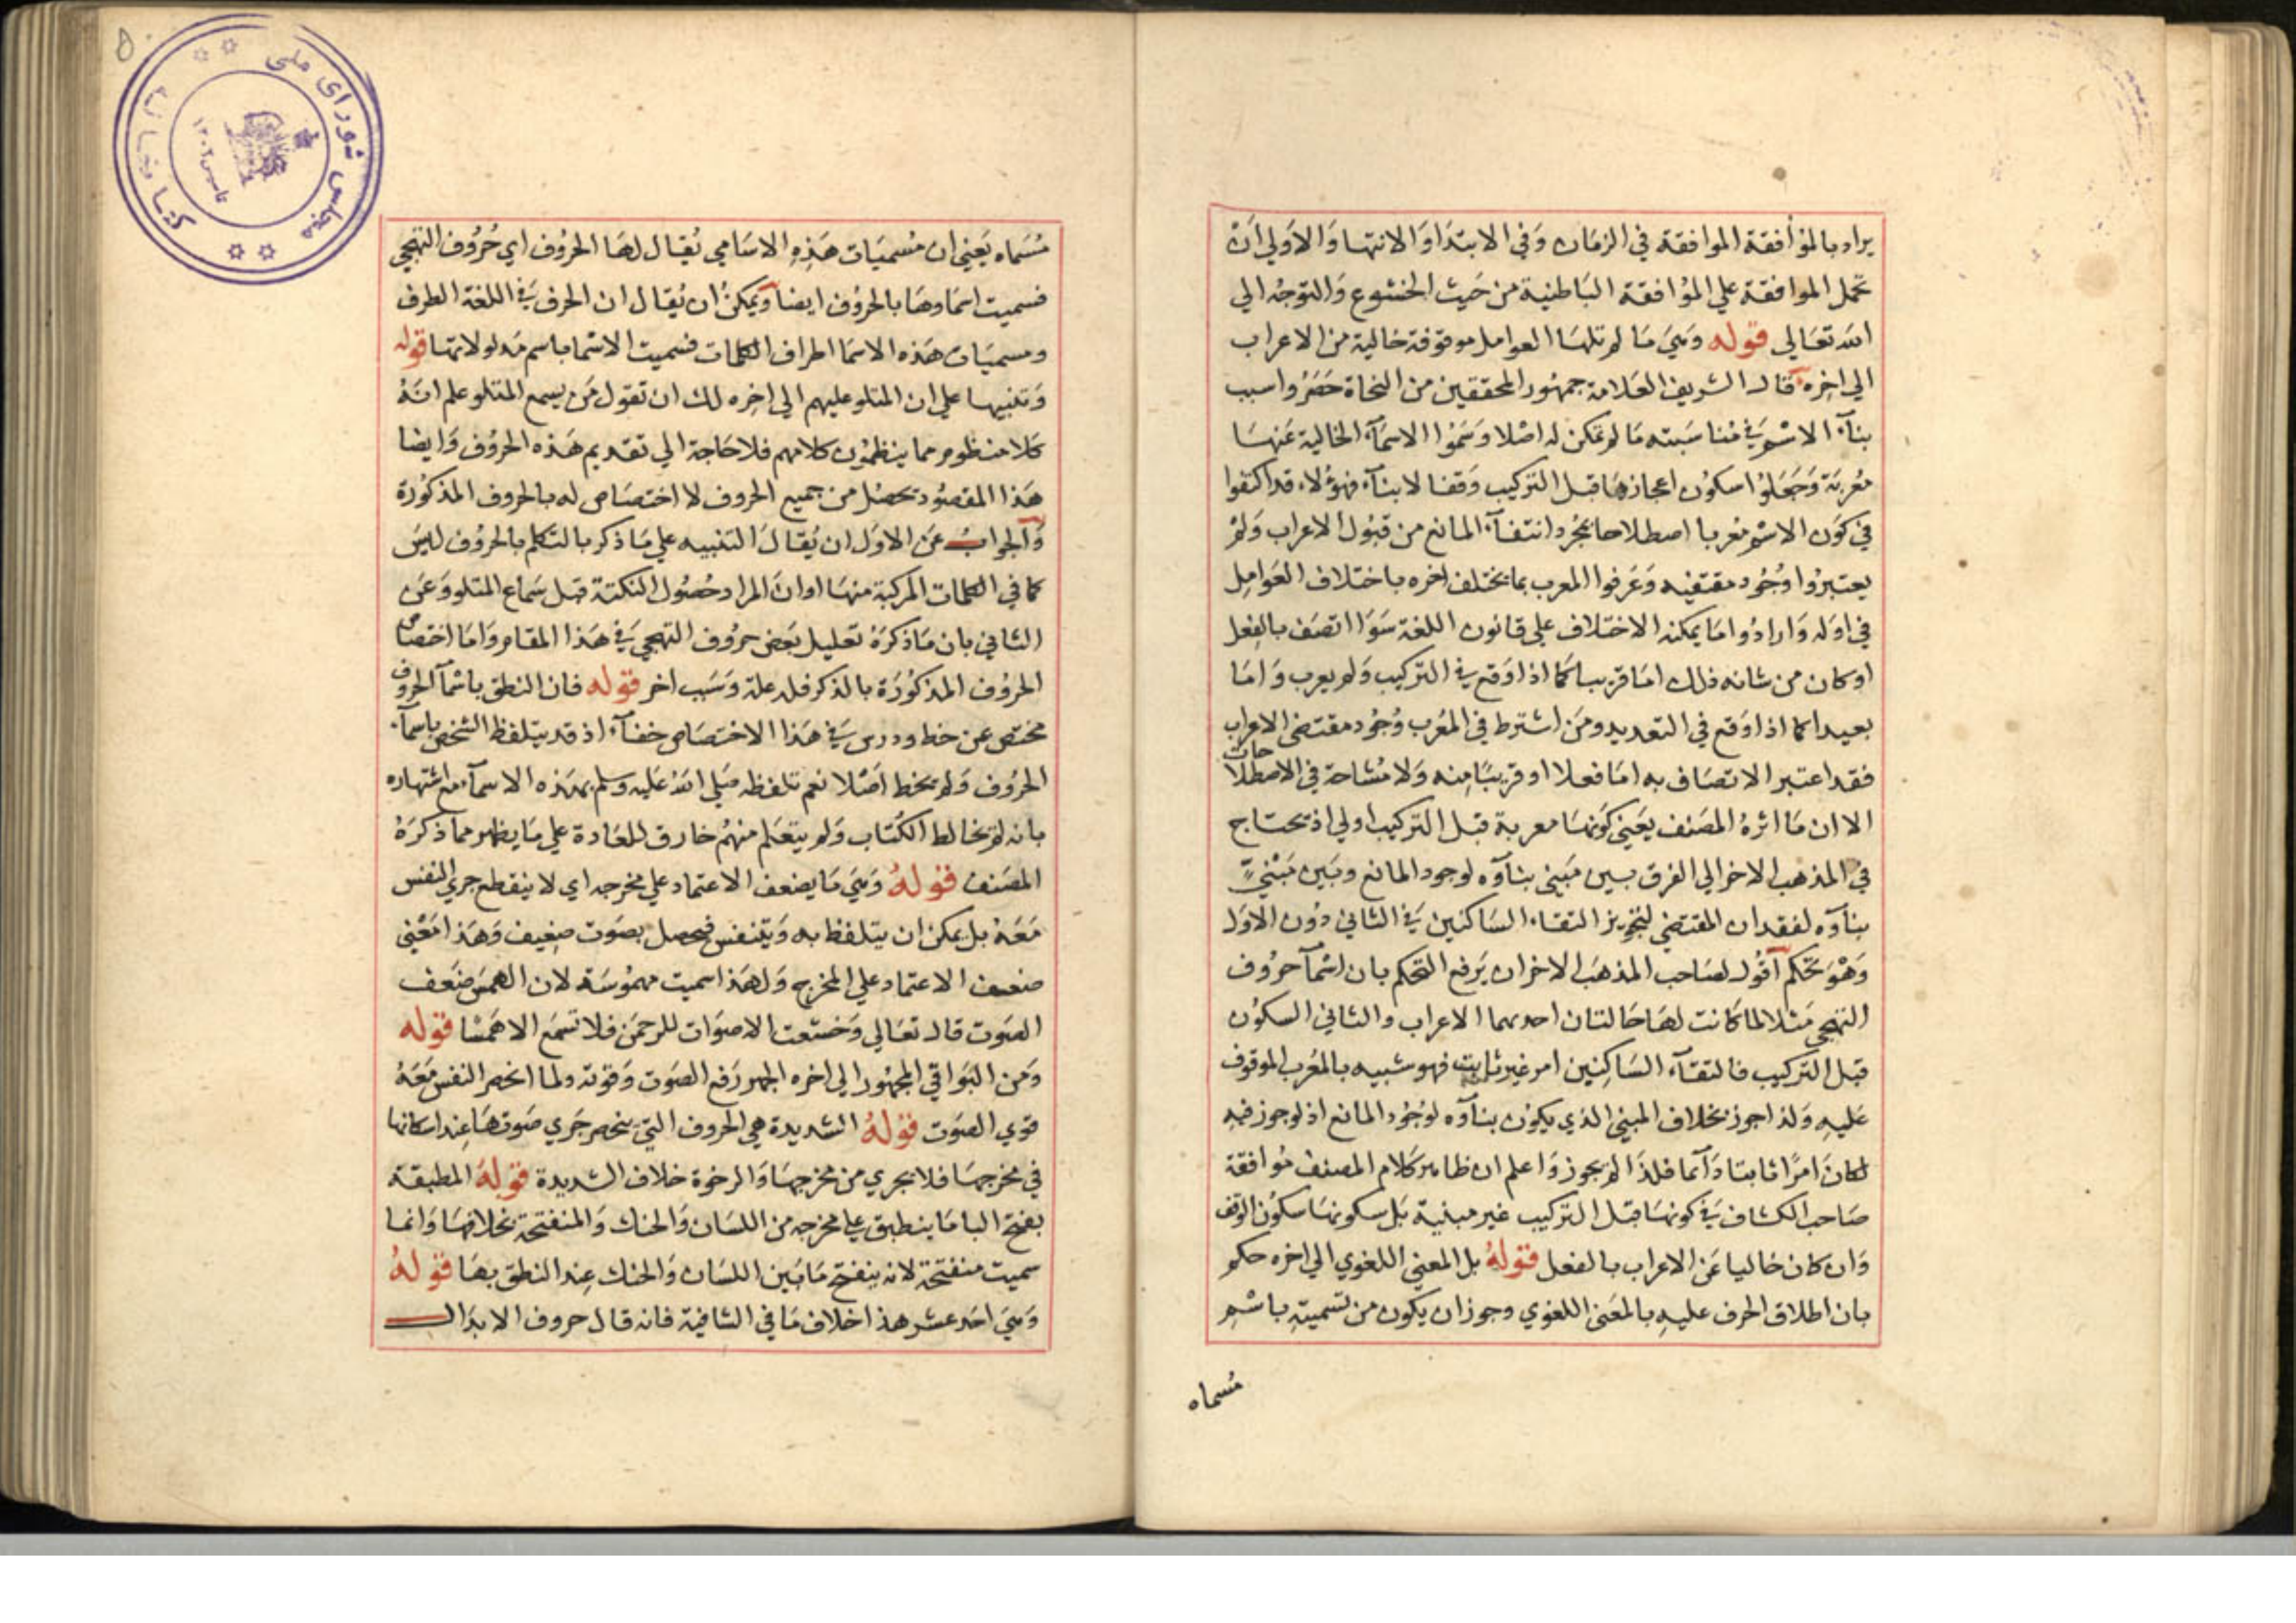 يراد بالموافقة الموافقة في الزمان وفي الابتدا والانتها والاولي ان
تحمل الموافقة علي الموافقة الباطنية من حيث الخشوع والتوجه الي
الله تعالي قوله وهي ما لم تلها العوامل موقوفة خالية من الاعراب
الي اخره قال الشريف العلامة جمهور المحققين من النحاة حصروا سبب
بنآء الاسم في مناسبته ما لم تمكن له اصلا وسموا الاسمآء الخالية عنها
معربة وجعلوا سكون اعجازها قبل التركيب وقفا لا بنآء فهولاء قد اكتفوا
في كون الاسم معربا اصطلاحا بمجرد انتفآء المانع من قبول الاعراب ولم
يعتبروا وجود مقتفيه وعرفوا المعرب بما يختلف اخره باختلاف العوامل
في اوله وارادوا ما يمكنه الاختلاف علي قانون اللغة سوا اتصف بالفعل
او كان من شانه ذلك اما قريبا كما اذا وقع في التركيب ولم يعرب واما
بعيدا كما اذا وقع في التعديد ومن اشترط في المعرب وجود مقتضي الاعراب
فقد اعتبر الاتصاف به اما فعلا او قريبا منه ولا مشاحة في الاصطلاحات
الا ان ما اثره المصنف يعني كونها معربة قبل التركيب اولي اذ تحتاج
في المذهب الاخر الي الفرق بين مبني بنآوه لوجود المانع وبين مبني
بنآوه لفقدان المقتضي لتجويز التقاء الساكنين في الثاني دون الاول
وهو تحكم آقول لصاحب المذهب الاخر ان يرفع التحكم بان اسمآ حروف
التهجي مثلا لما كانت لها حالتان احديهما الاعراب والثاني السكون
قبل التركيب فالتقآء الساكنين امر غير ثابت فهو شبيه بالمعرب الموقوف
عليه ولذا جوز بخلاف المبني الذي يكون بنآوه لوجود المانع اذ لو جوز فيه
لكان امرا ثابتا دآئما فلذا لم يجوز واعلم ان ظاهر كلام المصنف موافقة
صاحب الكشاف في كونها قبل التركيب غير مبنية بل سكونها سكون الوقف
وان كان خاليا عن الاعراب بالفعل قوله بل المعني اللغوي الي اخره حكم
بان اطلاق الحرف عليه بالمعني اللغوي وجوز ان يكون من تسميته باسم
مسماه
مسماه يعني ان مسميات هذه الاسامي يقال لها الحروف اي حروف التهجي
فسميت اسماوها بالحروف ايضا ويمكن ان يقال ان الحرف في اللغة الطرف
ومسميات هذه الاسما اطراف الكلمات فسميت الاسما باسم مدلولاتها قوله
وتنبيها علي ان المتلو عليهم الي اخره لك ان تقول من يسمع المتلو علم انه
كلام منظوم مما ينظمون كلامهم فلا حاجة الي تقديم هذه الحروف وايضا
هذا المقصود تحصل من جميع الحروف لا اختصاص له بالحروف المذكورة
وآلجواب عن الاول ان يقال التنبيه علي ما ذكر بالتكلم بالحروف ليس
كما في الكلمات المركبة منها او ان المراد حصول النكتة قبل سماع المتلو وعن
الثاني بان ما ذكره تعليل بعض حروف التهجي في هذا المقام واما اختصاص
الحروف المذكورة بالذكر فله علة وسبب اخر قوله فان النطق باسمآ الحروف
مختص عن خط ودرس في هذا الاختصاص خفآء اذ قد يتلفظ الشخص باسمآء
الحروف ولم يخط اصلا نعم تلفظه صلي الله عليه وسلم بهذه الاسمآء مع اشتهاره
بانه لم يخالط الكتاب ولم يتعلم منهم خارق للعادة علي ما يظهر مما ذكره
المصنف قوله وهي ما يضعف الاعتماد علي مخرجه اي لا ينقطع جري النفس
معه بل يمكن ان يتلفظ به ويتنفس فيحصل بصوت ضعيف وهذا معني
ضعف الاعتماد علي المخرج ولهذا سميت مهموسة لان الهمس ضعف
الصوت قال تعالي وخشعت الاصوات للرحمن فلا تسمع الا همسا قوله
ومن البواقي المجهورا الي اخره الجهر رفع الصوت وقوته ولما انحصر النفس معه
قوي الصوت قوله الشديدة هي الحروف التي ينحصر جري صوتها عند اسكانها
في مخرجها فلا يجري من مخرجها والرخوة خلاف الشديدة قوله المطبقة
بفتح البا ما ينطبق علي مخرجه من اللسان والحنك والمنفتحة بخلافها وانما
سميت منفتحة لانه ينفتح ما بين اللسان والحنك عند النطق بها قوله
وهي احد عشر هذا خلاف ما في الشافية فانه قال حروف الابدال
مجلس شورای ملی